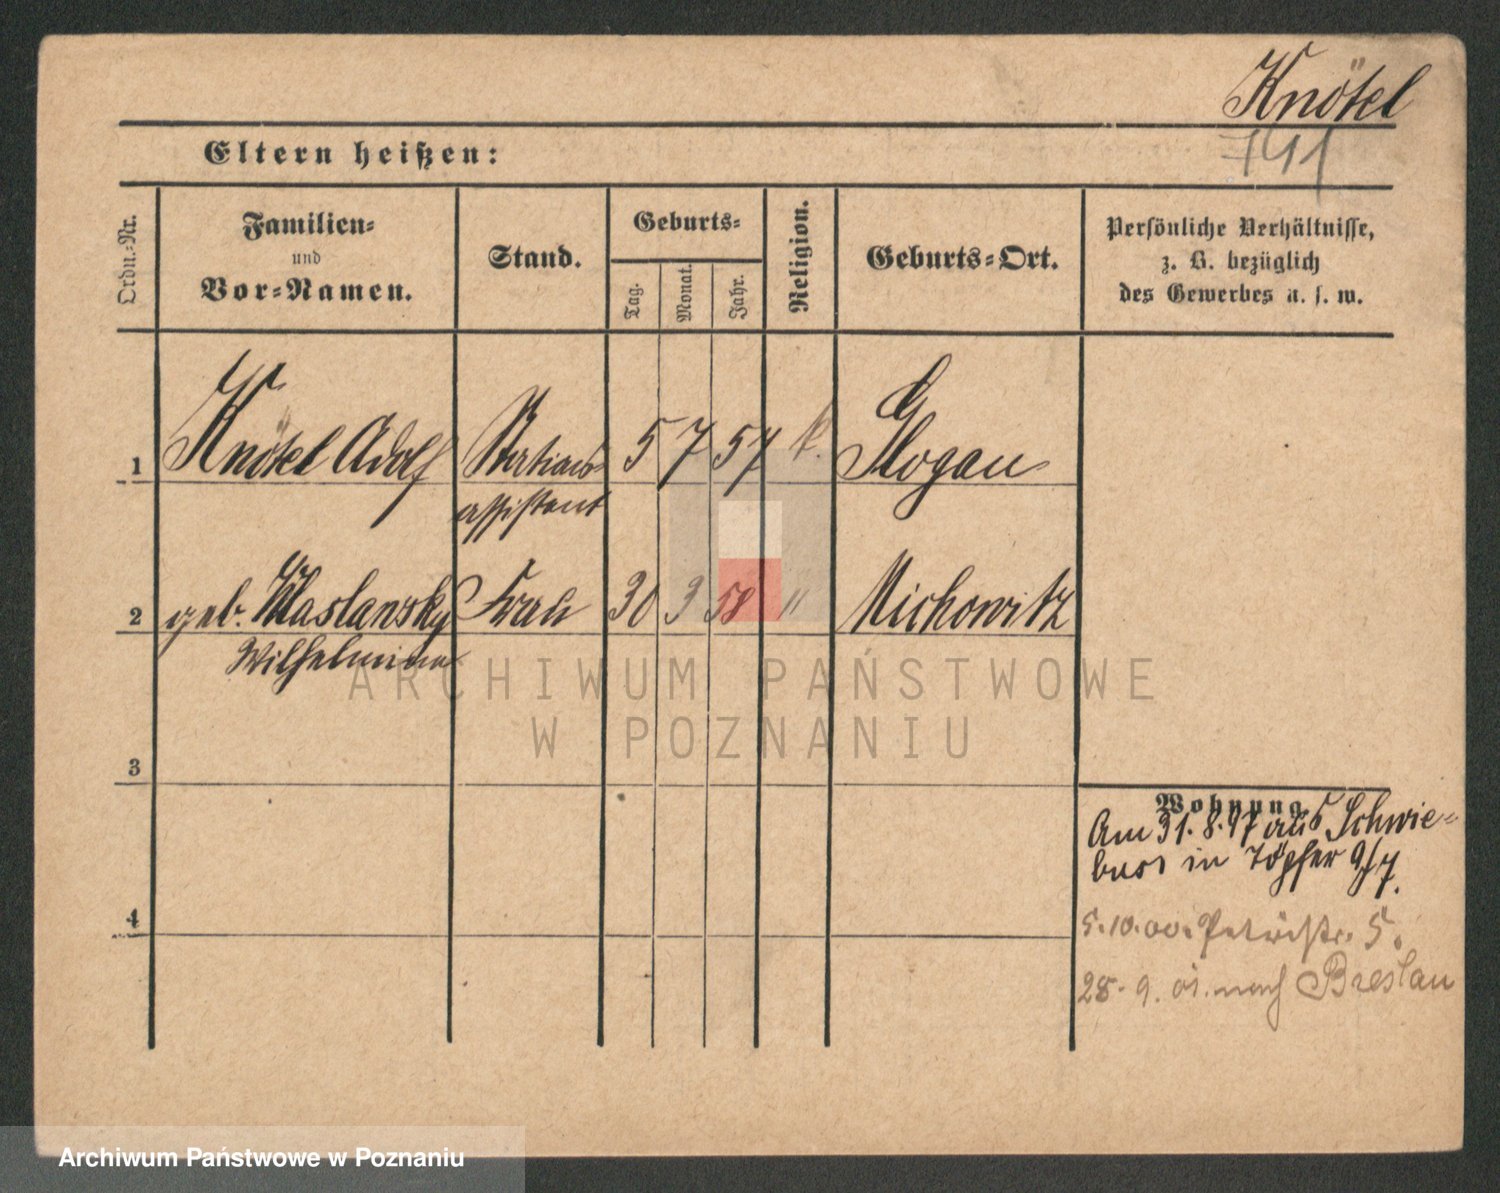 Knötel
741
Eltern heißen:
Ordn.-Nr.
Familien-
und
Vor-Namen.
Stand.
Geburts-
Tag.
Monat.
Jahr.
Religion.
Geburts-Ort.
Persönliche Verhältnisse,
z. B. bezüglich
des Gewerbes u. s. w.
1 Knötel Adolf Stations- 5 7 57 k. Glogau
assistent
2 geb. Maslansky Frau 30 3 58 " Michowitz
Wilhelmine
ARCHIWUM PAŃSTWOWE
W POZNANIU
3
Wohnung
Am 31. 8. 97 aus Schwie-
bus in Töpfer 9/7.
4
5.10.00. Petristr. 5.
28. 9. 01. nach Breslau
Archiwum Państwowe w Poznaniu